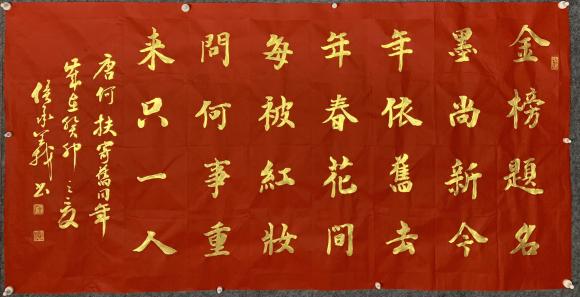 金榜題名
墨尚新今
年依舊去
年春花間
每被紅妝
問何事重
来只一人
唐何扶寄舊同年
歲在癸卯之夏
義书